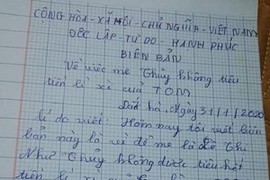 CỘNG HÒA - XÃ HỘI - CHỦ NGHĨA - VIỆT NAM
ĐỘC LẬP - TỰ DO - HẠNH PHÚC
BIÊN BẢN
Về việc mẹ Thủy không tiêu
tiền lì xì của TOM
Ngày 31/1/2020
Lí do viết: Hôm nay tôi viết biên
bản này là vì để mẹ là Thị
Như Thủy không được tiêu hết
tiền lì xì của